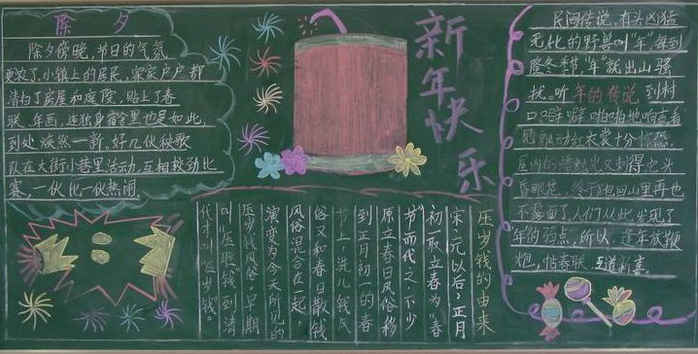 除 夕
除夕傍晚,节日的气氛
更浓了,小镇上的居民,家家户户都
清扫了房屋和庭院,贴上了春
联、年画,连独身宿舍里也是如此,
到处焕然一新。好几伙秧歌
队在大街小巷里活动,互相较劲比
赛,一伙比一伙热闹
新年快乐
压岁钱的由来
宋、元以后,正月
初一取立春为"春
节"而代之。不少
原立春日风俗移
到正月初一的春
节上。洗儿钱风
俗又和春日散钱
风俗混合在一起
演变为今天所见的
压岁钱风俗。早期
叫"压祟钱",到清
代才叫"压岁钱"。
民间传说,有头凶猛
无比的野兽叫"年"每到
隆冬季,"年"就出山骚
扰。听年的传说到村
口噼噼啪啪地响着
动红衣裳十分
屋内的 光又刺得它头
昏眼花,终于 回山里再也
不露面了人们从此发现了
年的弱点,所以,逢年放鞭
炮,帖春联,互道新喜。